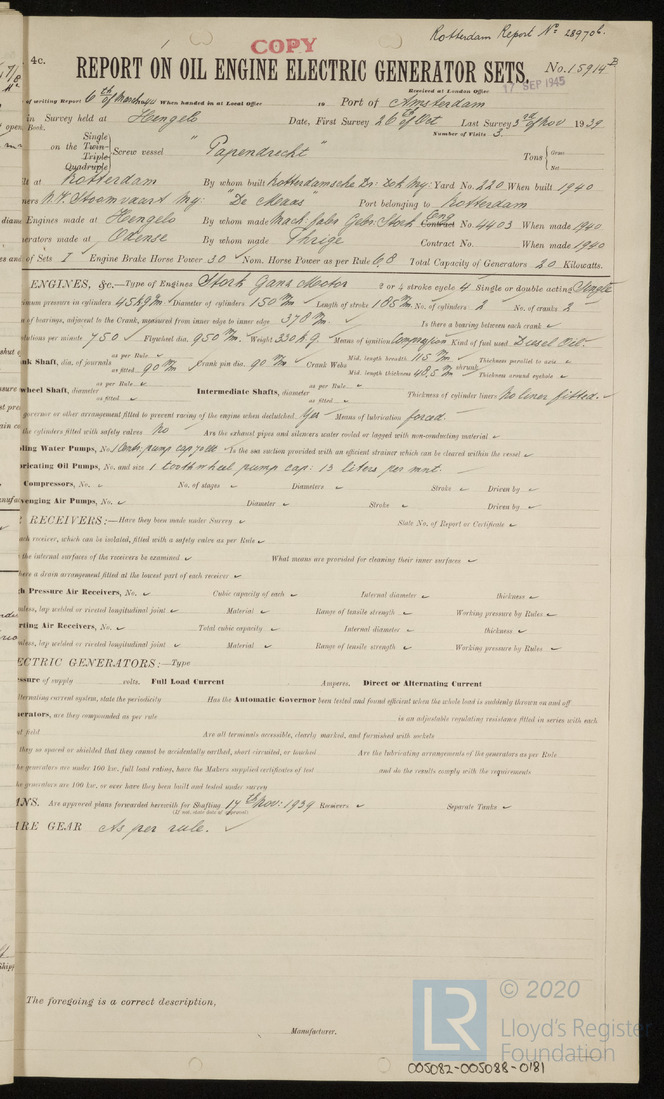 Rotterdam Report No. 28970b.
COPY
4c.
REPORT ON OIL ENGINE ELECTRIC GENERATOR SETS.
No. 15914B
Received at London Office
17 SEP 1945
of writing Report 6th of March 40 When handed in at Local Office 19 Port of Amsterdam
in Survey held at Hengelo Date, First Survey 26th of Oct Last Survey 3rd of Nov 1939
Book. Number of Visits 3.
Single
on the Twin
Triple
Quadruple
Screw vessel "Papendrecht"
Tons Gross
Net
lt at Rotterdam By whom built Rotterdamsche Dr. Dok My. Yard No. 220 When built 1940
ners N.V. Stoomvaart My. "De Maas" Port belonging to Rotterdam
Engines made at Hengelo By whom made Mach. fabr. Gebr. Stork Contract Eng No. 4403 When made 1940
erators made at Odense By whom made Thrige Contract No. When made 1940
of Sets 1 Engine Brake Horse Power 30 Nom. Horse Power as per Rule 6.8 Total Capacity of Generators 20 Kilowatts.
ENGINES, &c.—Type of Engines Stork Ganz Motor 2 or 4 stroke cycle 4 Single or double acting Single
imum pressure in cylinders 45 kg/m Diameter of cylinders 150 m/m Length of stroke 185 m/m No. of cylinders 2 No. of cranks 2
of bearings, adjacent to the Crank, measured from inner edge to inner edge 378 m/m. Is there a bearing between each crank ✓
lutions per minute 750 Flywheel dia. 950 m/m. Weight 330 kg. Means of ignition Compression Kind of fuel used Diesel Oil.
nk Shaft, dia. of journals as per Rule
as fitted 90 m/m Crank pin dia. 90 m/m Crank Webs Mid. length breadth 115 m/m Thickness parallel to axis ✓
Mid. length thickness 48.5 m/m shrunk Thickness around eyehole ✓
wheel Shaft, diameter as per Rule
as fitted Intermediate Shafts, diameter as per Rule
as fitted Thickness of cylinder liners No liner fitted. ✓
governor or other arrangement fitted to prevent racing of the engine when declutched Yes Means of lubrication forced.
the cylinders fitted with safety valves No Are the exhaust pipes and silencers water cooled or lagged with non-conducting material ✓
ling Water Pumps, No. 1 Centr. pump cap. Is the sea suction provided with an efficient strainer which can be cleared within the vessel ✓
ricating Oil Pumps, No. and size 1 toothwheel pump cap: 13 liters per mnt.
Compressors, No. ✓ No. of stages ✓ Diameters ✓ Stroke ✓ Driven by ✓
venging Air Pumps, No. ✓ Diameter ✓ Stroke ✓ Driven by ✓
RECEIVERS:—Have they been made under Survey ✓ State No. of Report or Certificate ✓
ach receiver, which can be isolated, fitted with a safety valve as per Rule ✓
the internal surfaces of the receivers be examined ✓ What means are provided for cleaning their inner surfaces ✓
here a drain arrangement fitted at the lowest part of each receiver ✓
h Pressure Air Receivers, No. ✓ Cubic capacity of each ✓ Internal diameter ✓ thickness ✓
mless, lap welded or riveted longitudinal joint ✓ Material ✓ Range of tensile strength ✓ Working pressure by Rules ✓
rting Air Receivers, No. ✓ Total cubic capacity ✓ Internal diameter ✓ thickness ✓
mless, lap welded or riveted longitudinal joint ✓ Material ✓ Range of tensile strength ✓ Working pressure by Rules ✓
ECTRIC GENERATORS:—Type
essure of supply volts. Full Load Current Amperes. Direct or Alternating Current
lternating current system, state the periodicity Has the Automatic Governor been tested and found efficient when the whole load is suddenly thrown on and off
nerators, are they compounded as per rule is an adjustable regulating resistance fitted in series with each
nt field Are all terminals accessible, clearly marked, and furnished with sockets
they so spaced or shielded that they cannot be accidentally earthed, short circuited, or touched Are the lubricating arrangements of the generators as per Rule
he generators are under 100 kw. full load rating, have the Makers supplied certificates of test and do the results comply with the requirements
he generators are 100 kw. or over have they been built and tested under survey
ANS. Are approved plans forwarded herewith for Shafting 17th Nov: 1939 Receivers ✓ Separate Tanks ✓
(If not, state date of approval)
ARE GEAR As per rule. ✓
The foregoing is a correct description,
Manufacturer.
LR
© 2020
Lloyd's Register
Foundation
005082-005088-0181